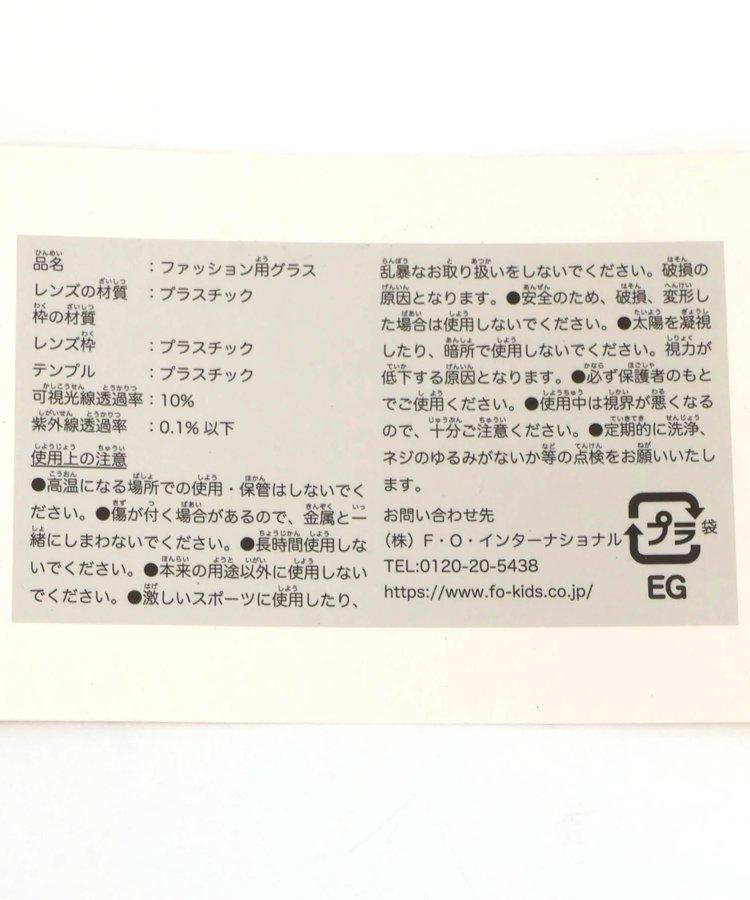 品名　　　　　：ファッション用グラス
レンズの材質　：プラスチック
枠の材質
レンズ枠　　　：プラスチック
テンプル　　　：プラスチック
可視光線透過率：10%
紫外線透過率　：0.1% 以下
使用上の注意
●高温になる場所での使用・保管はしないでく
ださい。●傷が付く場合があるので、金属と一
緒にしまわないでください。●長時間使用しな
いでください。●本来の用途以外に使用しない
でください。●激しいスポーツに使用したり、
乱暴なお取り扱いをしないでください。破損の
原因となります。●安全のため、破損、変形し
た場合は使用しないでください。●太陽を凝視
したり、暗所で使用しないでください。視力が
低下する原因となります。●必ず保護者のもと
でご使用ください。●使用中は視界が悪くなる
ので、十分ご注意ください。●定期的に洗浄、
ネジのゆるみがないか等の点検をお願いいたし
ます。
お問い合わせ先
（株）F・O・インターナショナル
TEL:0120-20-5438
https://www.fo-kids.co.jp/
プラ 袋
EG